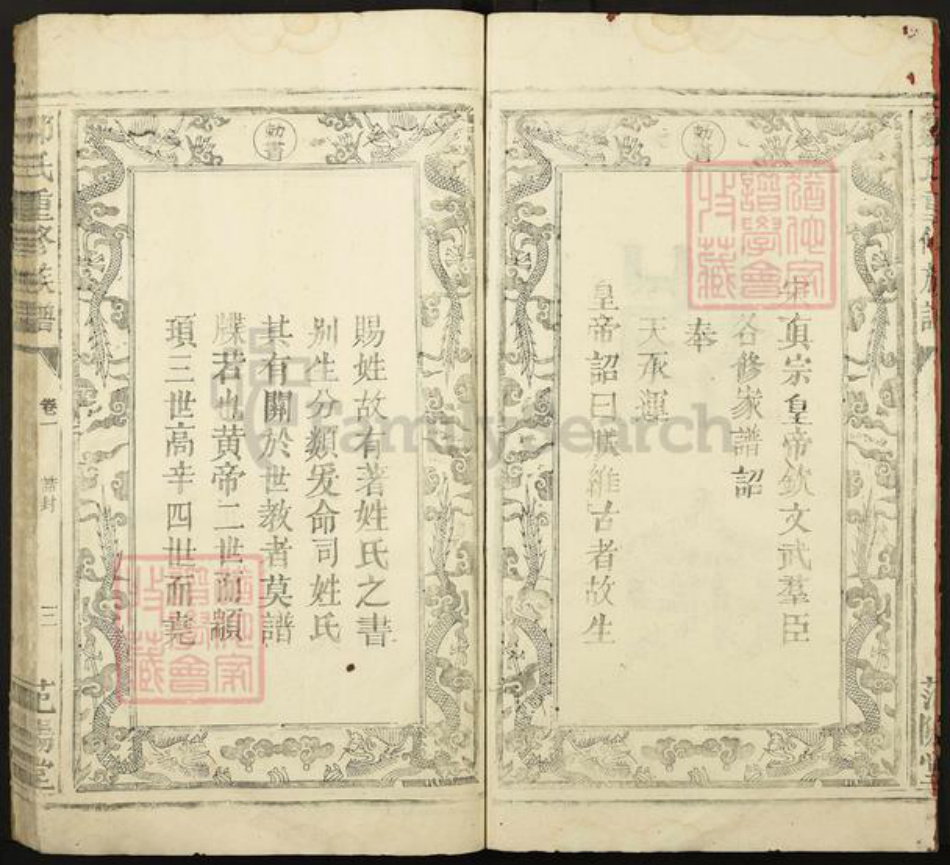 勅書
宋真宗皇帝欽文武羣臣
各修家譜詔
奉
天承運
皇帝詔曰朕維古者故生
勅書
賜姓故有著姓氏之書
別生分類爰命司姓氏
其有關於世教者莫譜
牒若也黃帝二世而顓
頊三世高辛四世而堯
氏重修族譜
卷一
誥封
三
范陽堂
FamilySearch